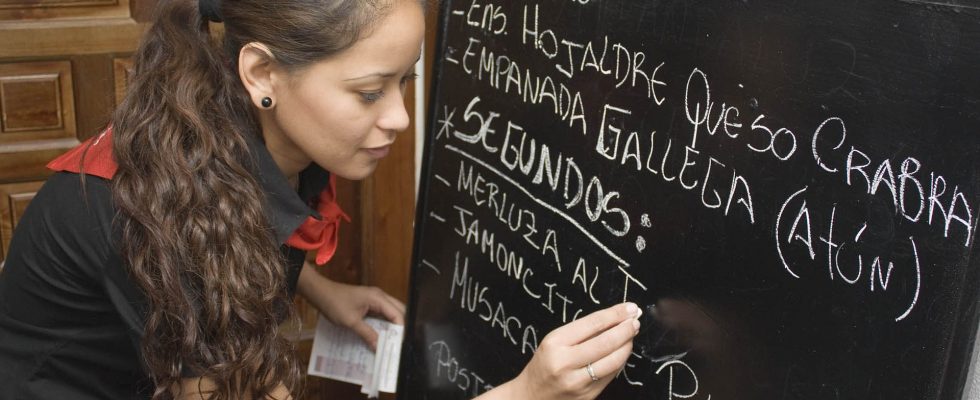 - ENS. HOJALDRE QUESO CABRA
- EMPANADA GALLEGA (ATÚN)
* SEGUNDOS:
- MERLUZA AL
- JAMONCITO
- MUSACA DE